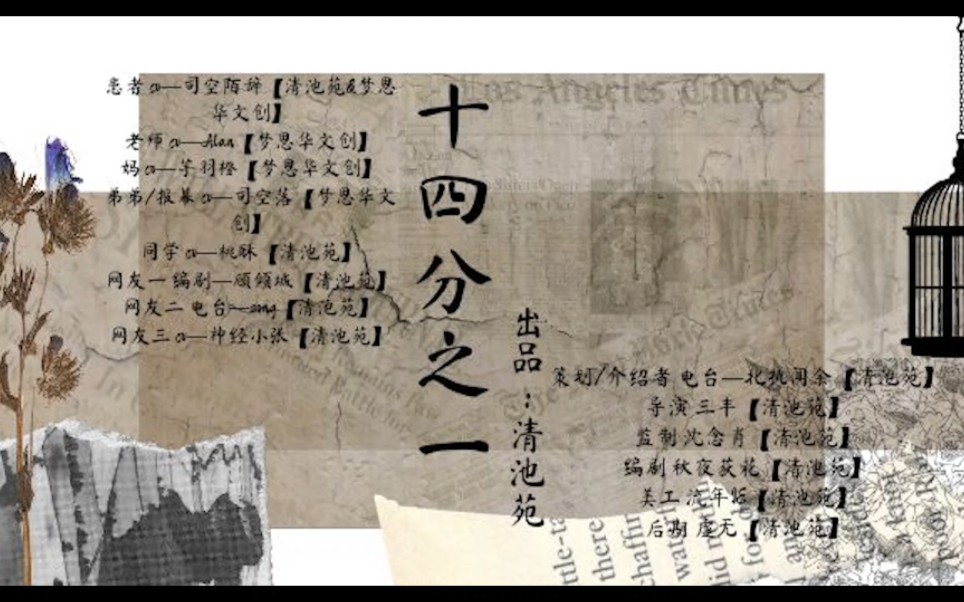 患者cv—司空陌辞【清池苑&梦思
华文创】
老师cv—Alan【梦思华文创】
妈cv—芋羽橙【梦思华文创】
弟弟/报幕cv—司空落【梦思华文
创】
同学cv—桃酥【清池苑】
网友一 编剧—顾倾城【清池苑】
网友二 电台—song【清池苑】
网友三 cv—神经小张【清池苑】
十四分之一
出品：清池苑
策划/介绍者 电台—北桃闻余【清池苑】
导演 三丰【清池苑】
监制 沈念肖【清池苑】
编剧 秋夜荻花【清池苑】
美工 流年【清池苑】
后期 虚无【清池苑】
Los Angeles Times
The New York Times
ttle-ta
there
chaffin